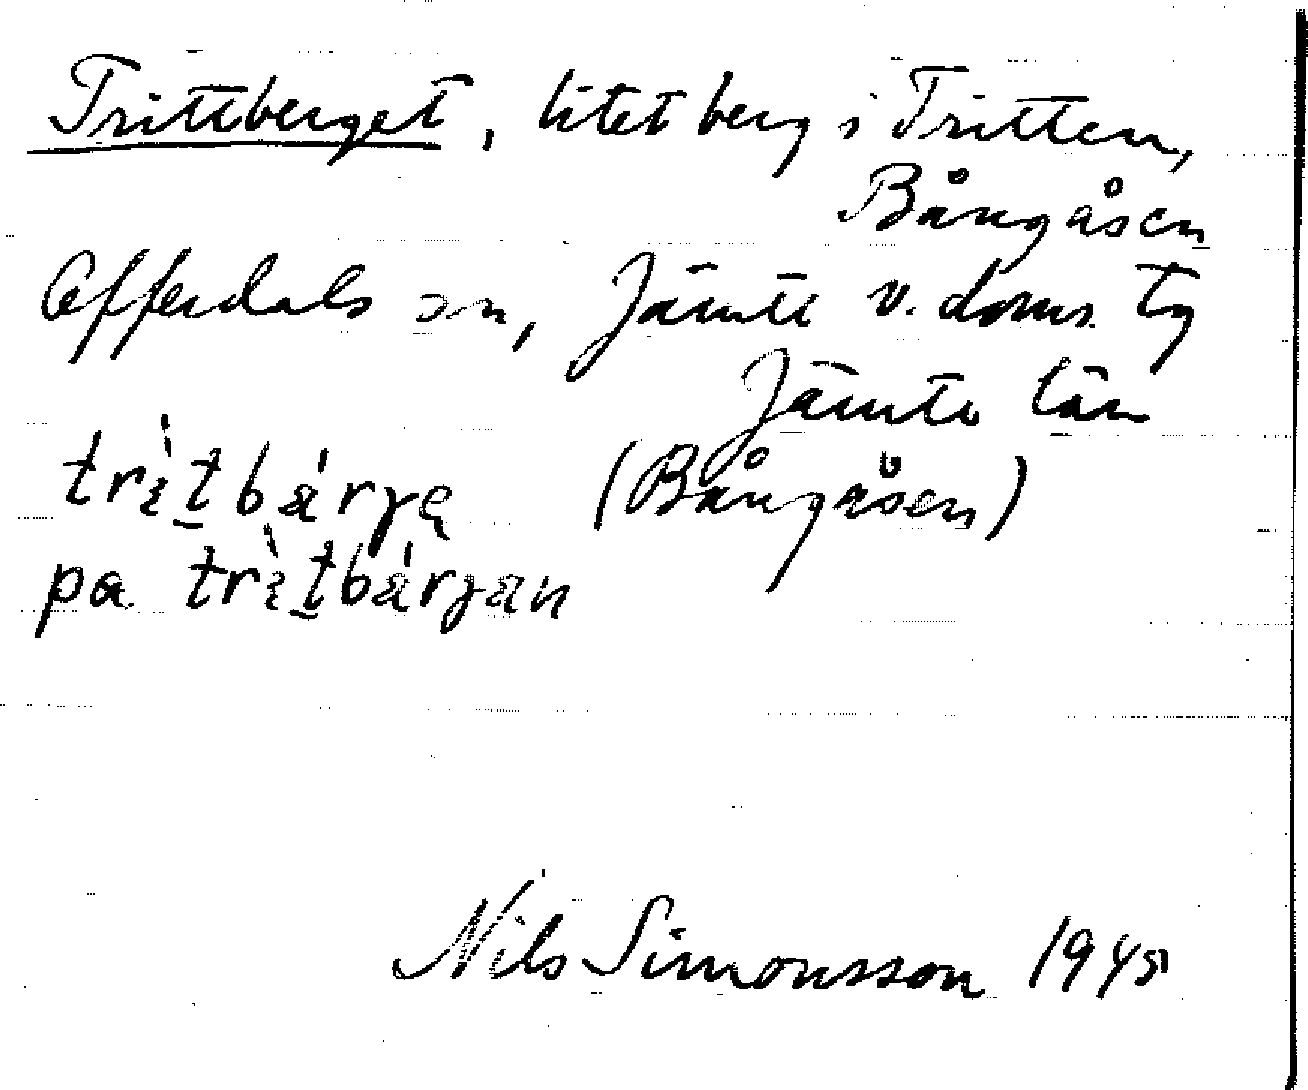 Trittberget, litet berg i Tritten,
Bångåsen
Offerdals sn, Jämte v. doms. tg
Jämte län
trìt̠bá̀rɣę (Bångåsen)
pa trìt̠bárɣan
Nils Simonsson 1945